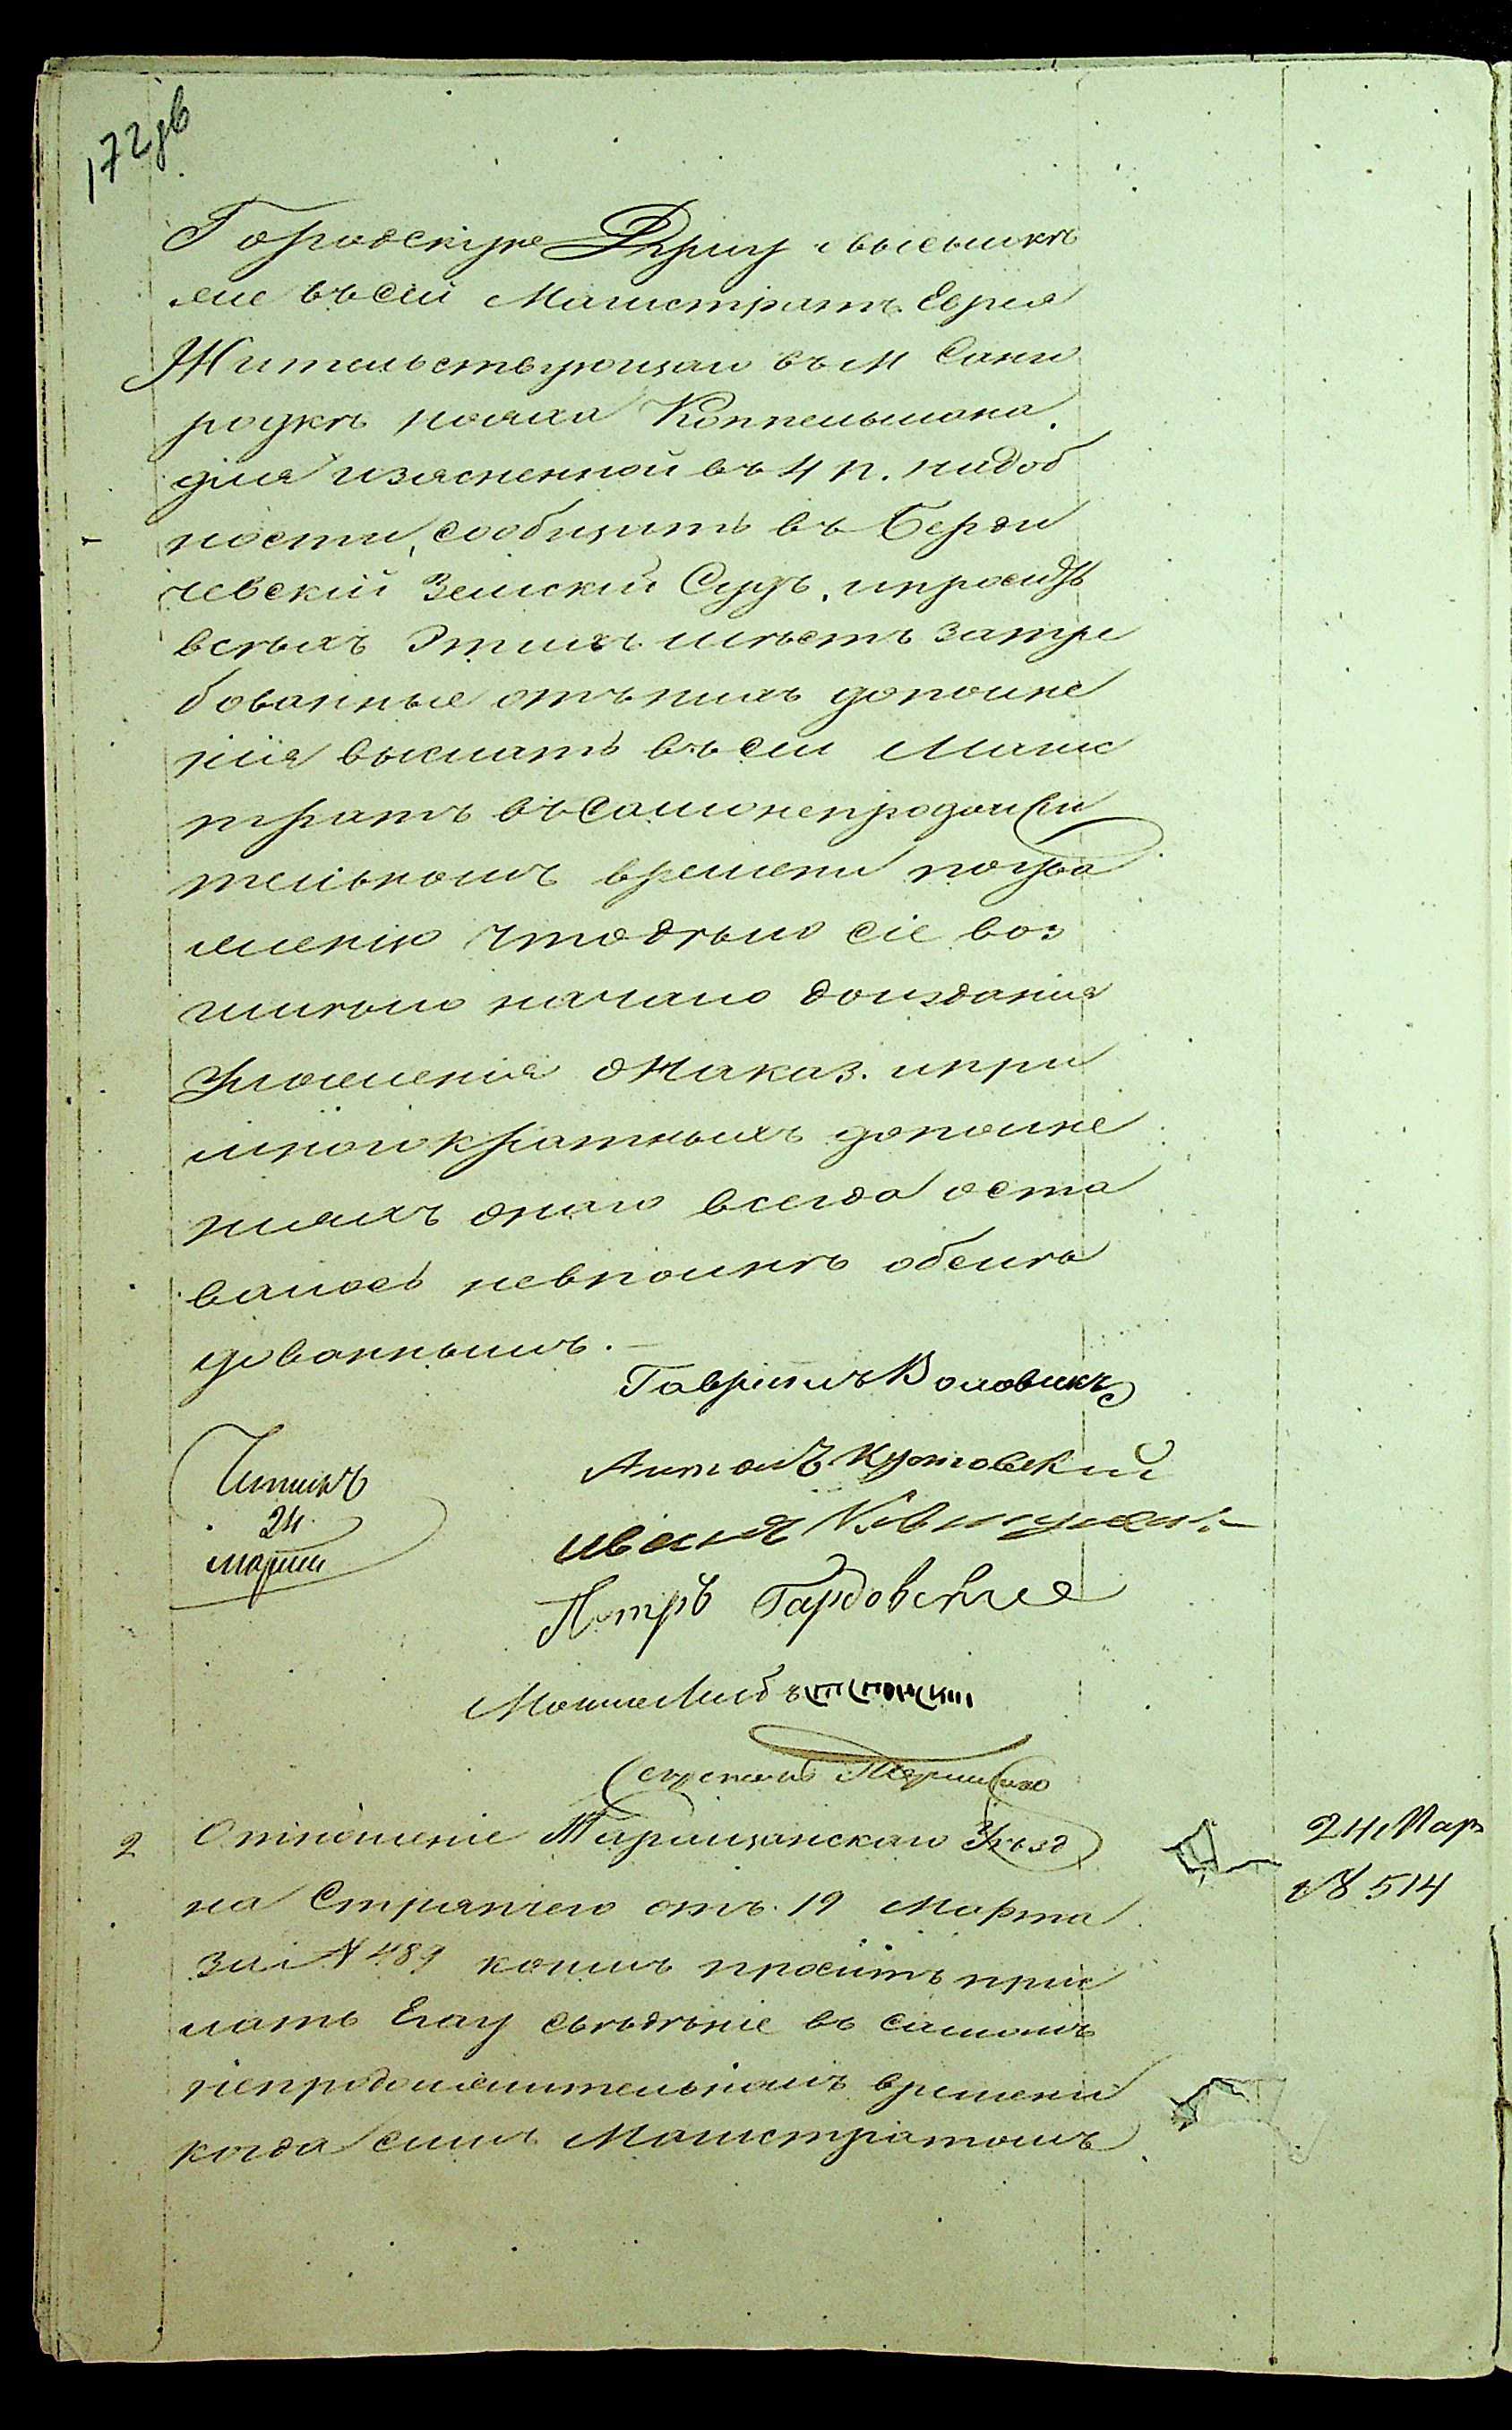 172 об
Городскую Думу овысылкѣ
ею въ сей Магистратъ Еврея
Жительствующаго въ м Сани
родкѣ
для изясненной въ 4 п. надоб
ности, сообщить въ Берди
чевскій Земскій Судъ. и просить
всѣхъ этихъ мѣстъ затре
бованные отъ нихъ дополне
нія выслать въ сей Магис
тратъ въ самонепродолжи
тельномъ времени поува
женію что дѣло сіе воз
имѣло начало до изданія
Уложенія о Наказ. и при
многократныхъ дополне
ніяхъ онаго всегда оста
валось невполнѣ обслѣ
дованнымъ.
Гавріилъ Воловикъ
Антонъ Кутовскій
Петръ Гардовскій
Мошко Либъ
Секретарь
Читалъ
24
марта
2 Отношеніе Таращанскаго Уѣзд
на Стряпчего отъ 19 Марта
за № 489 коимъ проситъ прис
лать Ему свѣдѣніе въ самомъ
непродолжительномъ времени
когда симъ Магистратомъ
24 Мар
№ 514